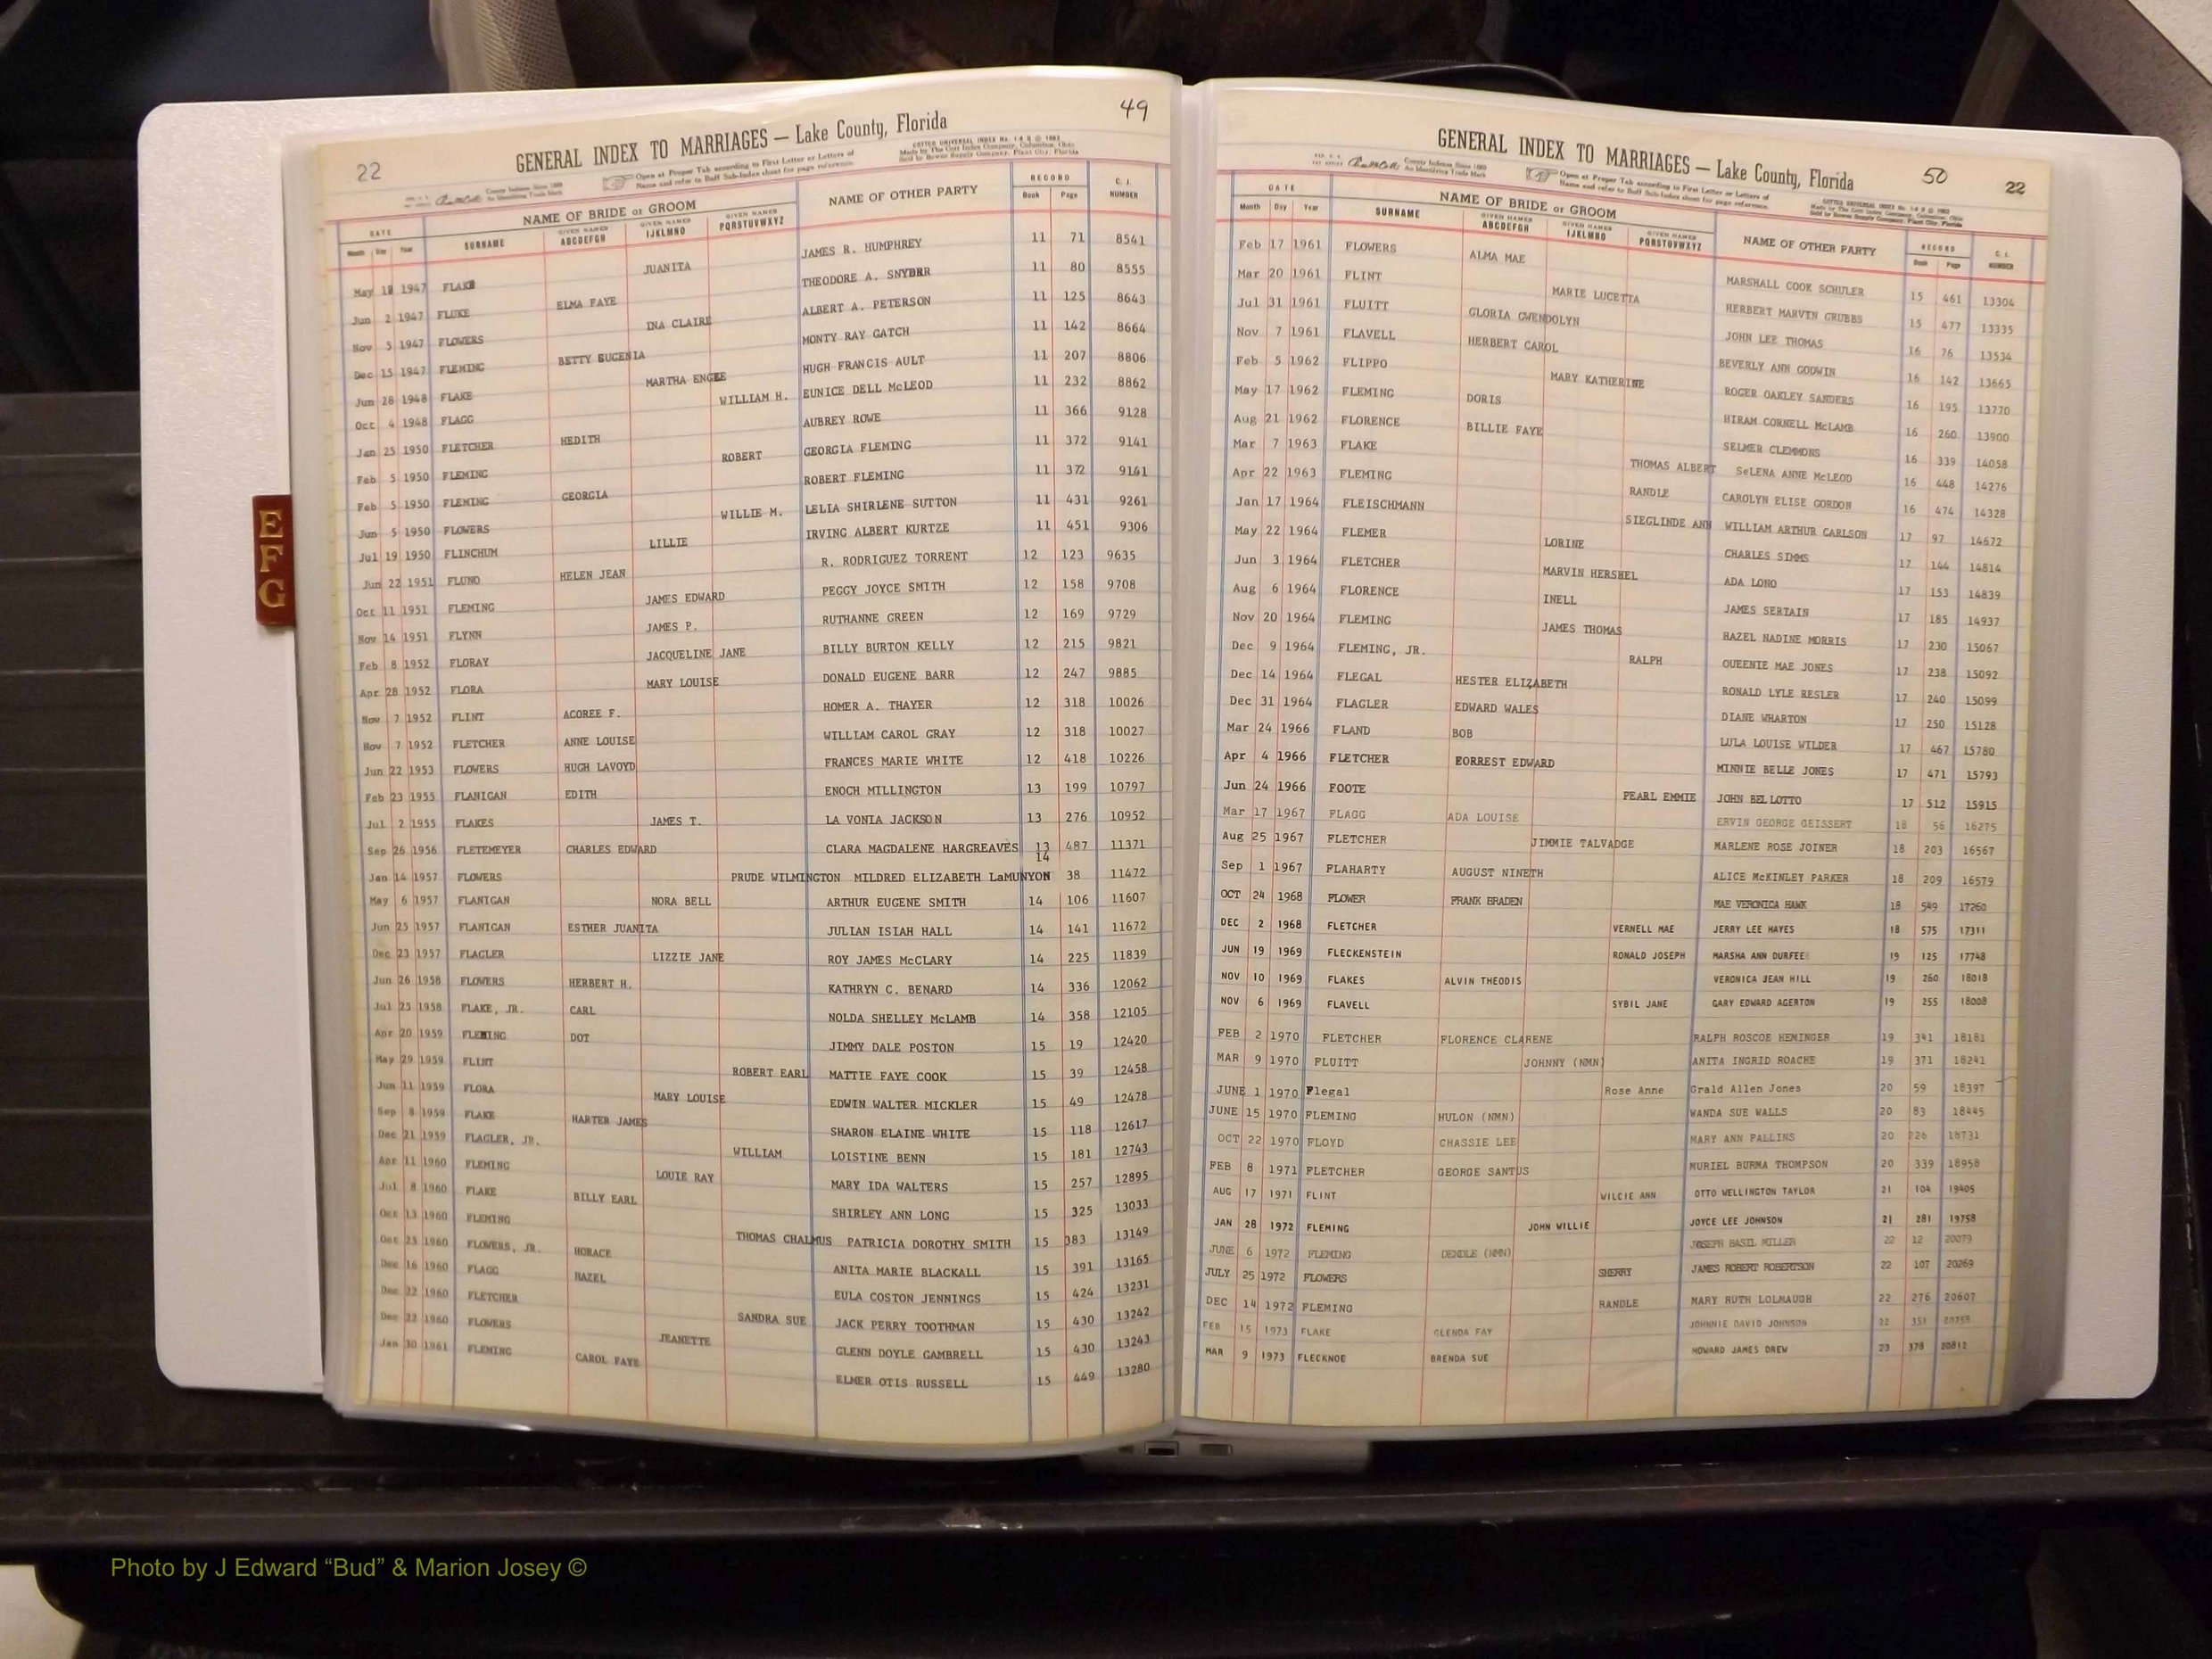 22
49
GENERAL INDEX TO MARRIAGES — Lake County, Florida
County Indexes Since 1888
An Identifying Trade Mark
Open at Proper Tab according to First Letter or Letters of
Name and refer to Buff Sub-Index sheet for page reference.
COTTED UNIVERSAL INDEX No. 1-6 B © 1963
Made by The Cott Index Company, Columbus, Ohio
Sold by Bowen Supply Company, Plant City, Florida
DATE NAME OF BRIDE or GROOM NAME OF OTHER PARTY RECORD C. I. NUMBER
Month Day Year SURNAME GIVEN NAMES ABCDEFGH GIVEN NAMES IJKLMNO GIVEN NAMES PQRSTUVWXYZ Book Page
May 18 1947 FLAKE JUANITA JAMES R. HUMPHREY 11 71 8541
Jun 2 1947 FLUKE ELMA FAYE THEODORE A. SNYDER 11 80 8555
Nov 5 1947 FLOWERS INA CLAIRE ALBERT A. PETERSON 11 125 8643
Dec 15 1947 FLEMING BETTY EUGENIA MONTY RAY GATCH 11 142 8664
Jun 28 1948 FLAKE MARTHA ENGEE HUGH FRANCIS AULT 11 207 8806
Oct 4 1948 FLAGG WILLIAM H. EUNICE DELL McLEOD 11 232 8862
Jan 25 1950 FLETCHER HEDITH AUBREY ROWE 11 366 9128
Feb 5 1950 FLEMING ROBERT GEORGIA FLEMING 11 372 9141
Feb 5 1950 FLEMING GEORGIA ROBERT FLEMING 11 372 9141
Jun 5 1950 FLOWERS WILLIE M. LELIA SHIRLENE SUTTON 11 431 9261
Jul 19 1950 FLINCHUM LILLIE IRVING ALBERT KURTZE 11 451 9306
Jun 22 1951 FLUNO HELEN JEAN R. RODRIGUEZ TORRENT 12 123 9635
Oct 11 1951 FLEMING JAMES EDWARD PEGGY JOYCE SMITH 12 158 9708
Nov 14 1951 FLYNN JAMES P. RUTHANNE GREEN 12 169 9729
Feb 8 1952 FLORAY JACQUELINE JANE BILLY BURTON KELLY 12 215 9821
Apr 28 1952 FLORA MARY LOUISE DONALD EUGENE BARR 12 247 9885
Nov 7 1952 FLINT ACOREE F. HOMER A. THAYER 12 318 10026
Nov 7 1952 FLETCHER ANNE LOUISE WILLIAM CAROL GRAY 12 318 10027
Jun 22 1953 FLOWERS HUGH LAVOYD FRANCES MARIE WHITE 12 418 10226
Feb 23 1955 FLANIGAN EDITH ENOCH MILLINGTON 13 199 10797
Jul 2 1955 FLAKES JAMES T. LA VONIA JACKSON 13 276 10952
Sep 26 1956 FLETEMEYER CHARLES EDWARD CLARA MAGDALENE HARGREAVES 13 487 11371
Jan 14 1957 FLOWERS PRUDE WILMINGTON MILDRED ELIZABETH LaMUNYON 14 38 11472
May 6 1957 FLANIGAN NORA BELL ARTHUR EUGENE SMITH 14 106 11607
Jun 25 1957 FLANIGAN ESTHER JUANITA JULIAN ISIAH HALL 14 141 11672
Dec 23 1957 FLAGLER LIZZIE JANE ROY JAMES McCLARY 14 225 11839
Jun 26 1958 FLOWERS HERBERT H. KATHRYN C. BENARD 14 336 12062
Jul 25 1958 FLAKE, JR. CARL NOLDA SHELLEY McLAMB 14 358 12105
Apr 20 1959 FLEMING DOT JIMMY DALE POSTON 15 19 12420
May 29 1959 FLINT ROBERT EARL MATTIE FAYE COOK 15 39 12458
Jun 11 1959 FLORA MARY LOUISE EDWIN WALTER MICKLER 15 49 12478
Sep 8 1959 FLAKE HARTER JAMES SHARON ELAINE WHITE 15 118 12617
Dec 21 1959 FLAGLER, JR. WILLIAM LOISTINE BENN 15 181 12743
Apr 11 1960 FLEMING LOUIE RAY MARY IDA WALTERS 15 257 12895
Jul 8 1960 FLAKE BILLY EARL SHIRLEY ANN LONG 15 325 13033
Oct 13 1960 FLEMING THOMAS CHALMUS PATRICIA DOROTHY SMITH 15 383 13149
Oct 25 1960 FLOWERS, JR. HORACE ANITA MARIE BLACKALL 15 391 13165
Dec 16 1960 FLAGG HAZEL EULA COSTON JENNINGS 15 424 13231
Dec 22 1960 FLETCHER SANDRA SUE JACK PERRY TOOTHMAN 15 430 13242
Dec 22 1960 FLOWERS JEANETTE GLENN DOYLE GAMBRELL 15 430 13243
Jan 30 1961 FLEMING CAROL FAYE ELMER OTIS RUSSELL 15 449 13280
E
F
G
GENERAL INDEX TO MARRIAGES — Lake County, Florida
50
22
County Indexes Since 1888
An Identifying Trade Mark
Open at Proper Tab according to First Letter or Letters of
Name and refer to Buff Sub-Index sheet for page reference.
COTTED UNIVERSAL INDEX No. 1-6 B © 1963
Made by The Cott Index Company, Columbus, Ohio
Sold by Bowen Supply Company, Plant City, Florida
DATE NAME OF BRIDE or GROOM NAME OF OTHER PARTY RECORD C. I. NUMBER
Month Day Year SURNAME GIVEN NAMES ABCDEFGH GIVEN NAMES IJKLMNO GIVEN NAMES PQRSTUVWXYZ Book Page
Feb 17 1961 FLOWERS ALMA MAE MARSHALL COOK SCHULER 15 461 13304
Mar 20 1961 FLINT MARIE LUCETTA HERBERT MARVIN GRUBBS 15 477 13335
Jul 31 1961 FLUITT GLORIA GWENDOLYN JOHN LEE THOMAS 16 76 13534
Nov 7 1961 FLAVELL HERBERT CAROL BEVERLY ANN GODWIN 16 142 13665
Feb 5 1962 FLIPPO MARY KATHERINE ROGER OAKLEY SANDERS 16 195 13770
May 17 1962 FLEMING DORIS HIRAM CORNELL McLAMB 16 260 13900
Aug 21 1962 FLORENCE BILLIE FAYE SELMER CLEMMONS 16 339 14058
Mar 7 1963 FLAKE THOMAS ALBERT SeLENA ANNE McLEOD 16 448 14276
Apr 22 1963 FLEMING RANDLE CAROLYN ELISE GORDON 16 474 14328
Jan 17 1964 FLEISCHMANN SIEGLINDE ANN WILLIAM ARTHUR CARLSON 17 97 14672
May 22 1964 FLEMER LORINE CHARLES SIMMS 17 144 14814
Jun 3 1964 FLETCHER MARVIN HERSHEL ADA LONO 17 153 14839
Aug 6 1964 FLORENCE INELL JAMES SERTAIN 17 185 14937
Nov 20 1964 FLEMING JAMES THOMAS HAZEL NADINE MORRIS 17 230 15067
Dec 9 1964 FLEMING, JR. RALPH QUEENIE MAE JONES 17 238 15092
Dec 14 1964 FLEGAL HESTER ELIZABETH RONALD LYLE RESLER 17 240 15099
Dec 31 1964 FLAGLER EDWARD WALES DIANE WHARTON 17 250 15128
Mar 24 1966 FLAND BOB LULA LOUISE WILDER 17 467 15780
Apr 4 1966 FLETCHER FORREST EDWARD MINNIE BELLE JONES 17 471 15793
Jun 24 1966 FOOTE PEARL EMMIE JOHN BELLOTTO 17 512 15915
Mar 17 1967 FLAGG ADA LOUISE ERVIN GEORGE GEISSERT 18 56 16275
Aug 25 1967 FLETCHER JIMMIE TALVADGE MARLENE ROSE JOINER 18 203 16567
Sep 1 1967 FLAHARTY AUGUST NINETH ALICE McKINLEY PARKER 18 209 16579
OCT 24 1968 FLOWER FRANK BRADEN MAE VERONICA HAWK 18 549 17260
DEC 2 1968 FLETCHER VERNELL MAE JERRY LEE HAYES 18 575 17311
JUN 19 1969 FLECKENSTEIN RONALD JOSEPH MARSHA ANN DURFEE 19 125 17748
NOV 10 1969 FLAKES ALVIN THEODIS VERONICA JEAN HILL 19 260 18018
NOV 6 1969 FLAVELL SYBIL JANE GARY EDWARD AGERTON 19 255 18008
FEB 2 1970 FLETCHER FLORENCE CLARENE RALPH ROSCOE HEMINGER 19 341 18181
MAR 9 1970 FLUITT JOHNNY (NMN) ANITA INGRID ROACHE 19 371 18241
JUNE 1 1970 Flegal Rose Anne Grald Allen Jones 20 59 18397
JUNE 15 1970 FLEMING HULON (NMN) WANDA SUE WALLS 20 83 18445
OCT 22 1970 FLOYD CHASSIE LEE MARY ANN FALLINS 20 226 18731
FEB 8 1971 FLETCHER GEORGE SANTUS MURIEL BURMA THOMPSON 20 339 18958
AUG 17 1971 FLINT WILCIE ANN OTTO WELLINGTON TAYLOR 21 104 19405
JAN 28 1972 FLEMING JOHN WILLIE JOYCE LEE JOHNSON 21 281 19758
JUNE 6 1972 FLEMING DENDLE (NMN) JOSEPH BASIL MILLER 22 12 20079
JULY 25 1972 FLOWERS SHERRY JAMES ROBERT ROBERTSON 22 107 20269
DEC 14 1972 FLEMING RANDLE MARY RUTH LOLMAUGH 22 276 20607
FEB 15 1973 FLAKE GLENDA FAY JOHNNIE DAVID JOHNSON 22 351
MAR 9 1973 FLECKNOE BRENDA SUE HOWARD JAMES DREW 23 378 20812
Photo by J Edward “Bud” & Marion Josey ©